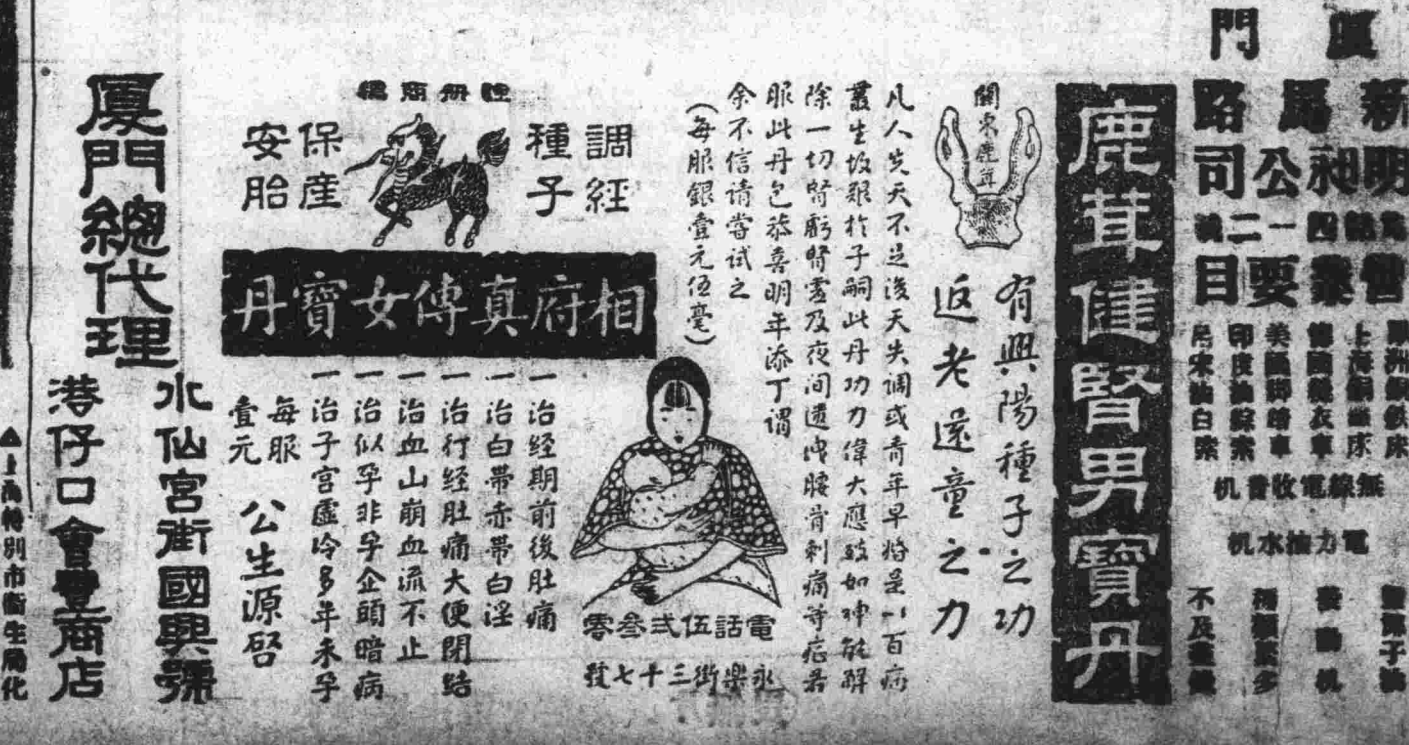 廈門
新馬路
明昶公司
電話四一二號
營業要目
歐洲銅鉄床
上海銅鐵床
德國縫衣車
美國脚踏車
印度油綜索
呂宋油白索
無線電收音机
電力抽水机
發動机
種類衆多
不及盡錄
鹿茸健腎男寶丹
關東鹿茸
有興陽種子之功
返老還童之力
凡人先天不足後天失調或青年早婚是以百病
叢生故艱於子嗣此丹功力偉大應效如神能解
除一切腎虧腎虛及夜間遺洩腰背刺痛等症若
服此丹包恭喜明年添丁謂
余不信請嘗試之
(每服銀壹元伍毫)
註册商標
調經
種子
保産
安胎
相府真傳女寶丹
一治经期前後肚痛
一治白帯赤帯白淫
一治行经肚痛大便閉結
一治血山崩血流不止
一治似孕非孕企頭暗病
一治子宮虛冷多年未孕
每服
壹元
公生源啓
電話伍弍叁零
永樂街三十七號
廈門總代理
水仙宮街國興號
港仔口會豐商店
▲上海特别市衛生局化